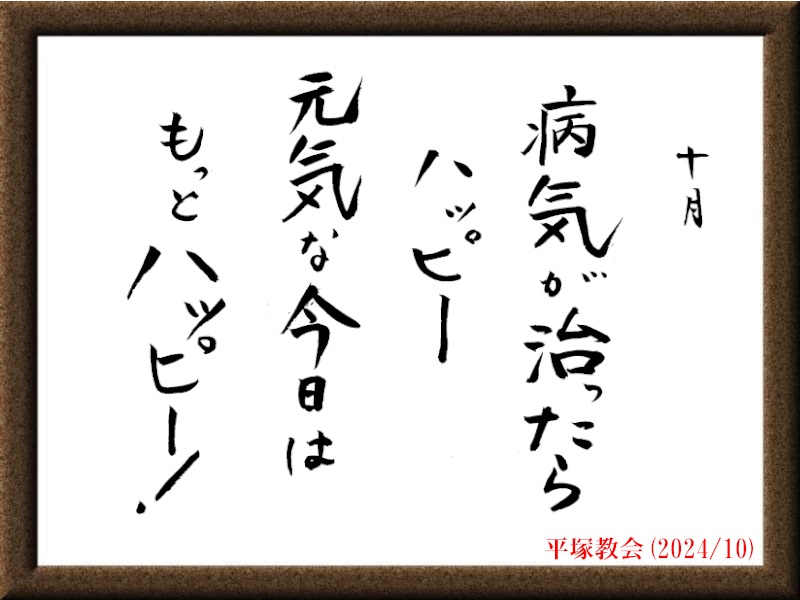 十月
病気が治ったら
ハッピー
元気な今日は
もっとハッピー！
平塚教会(2024/10)